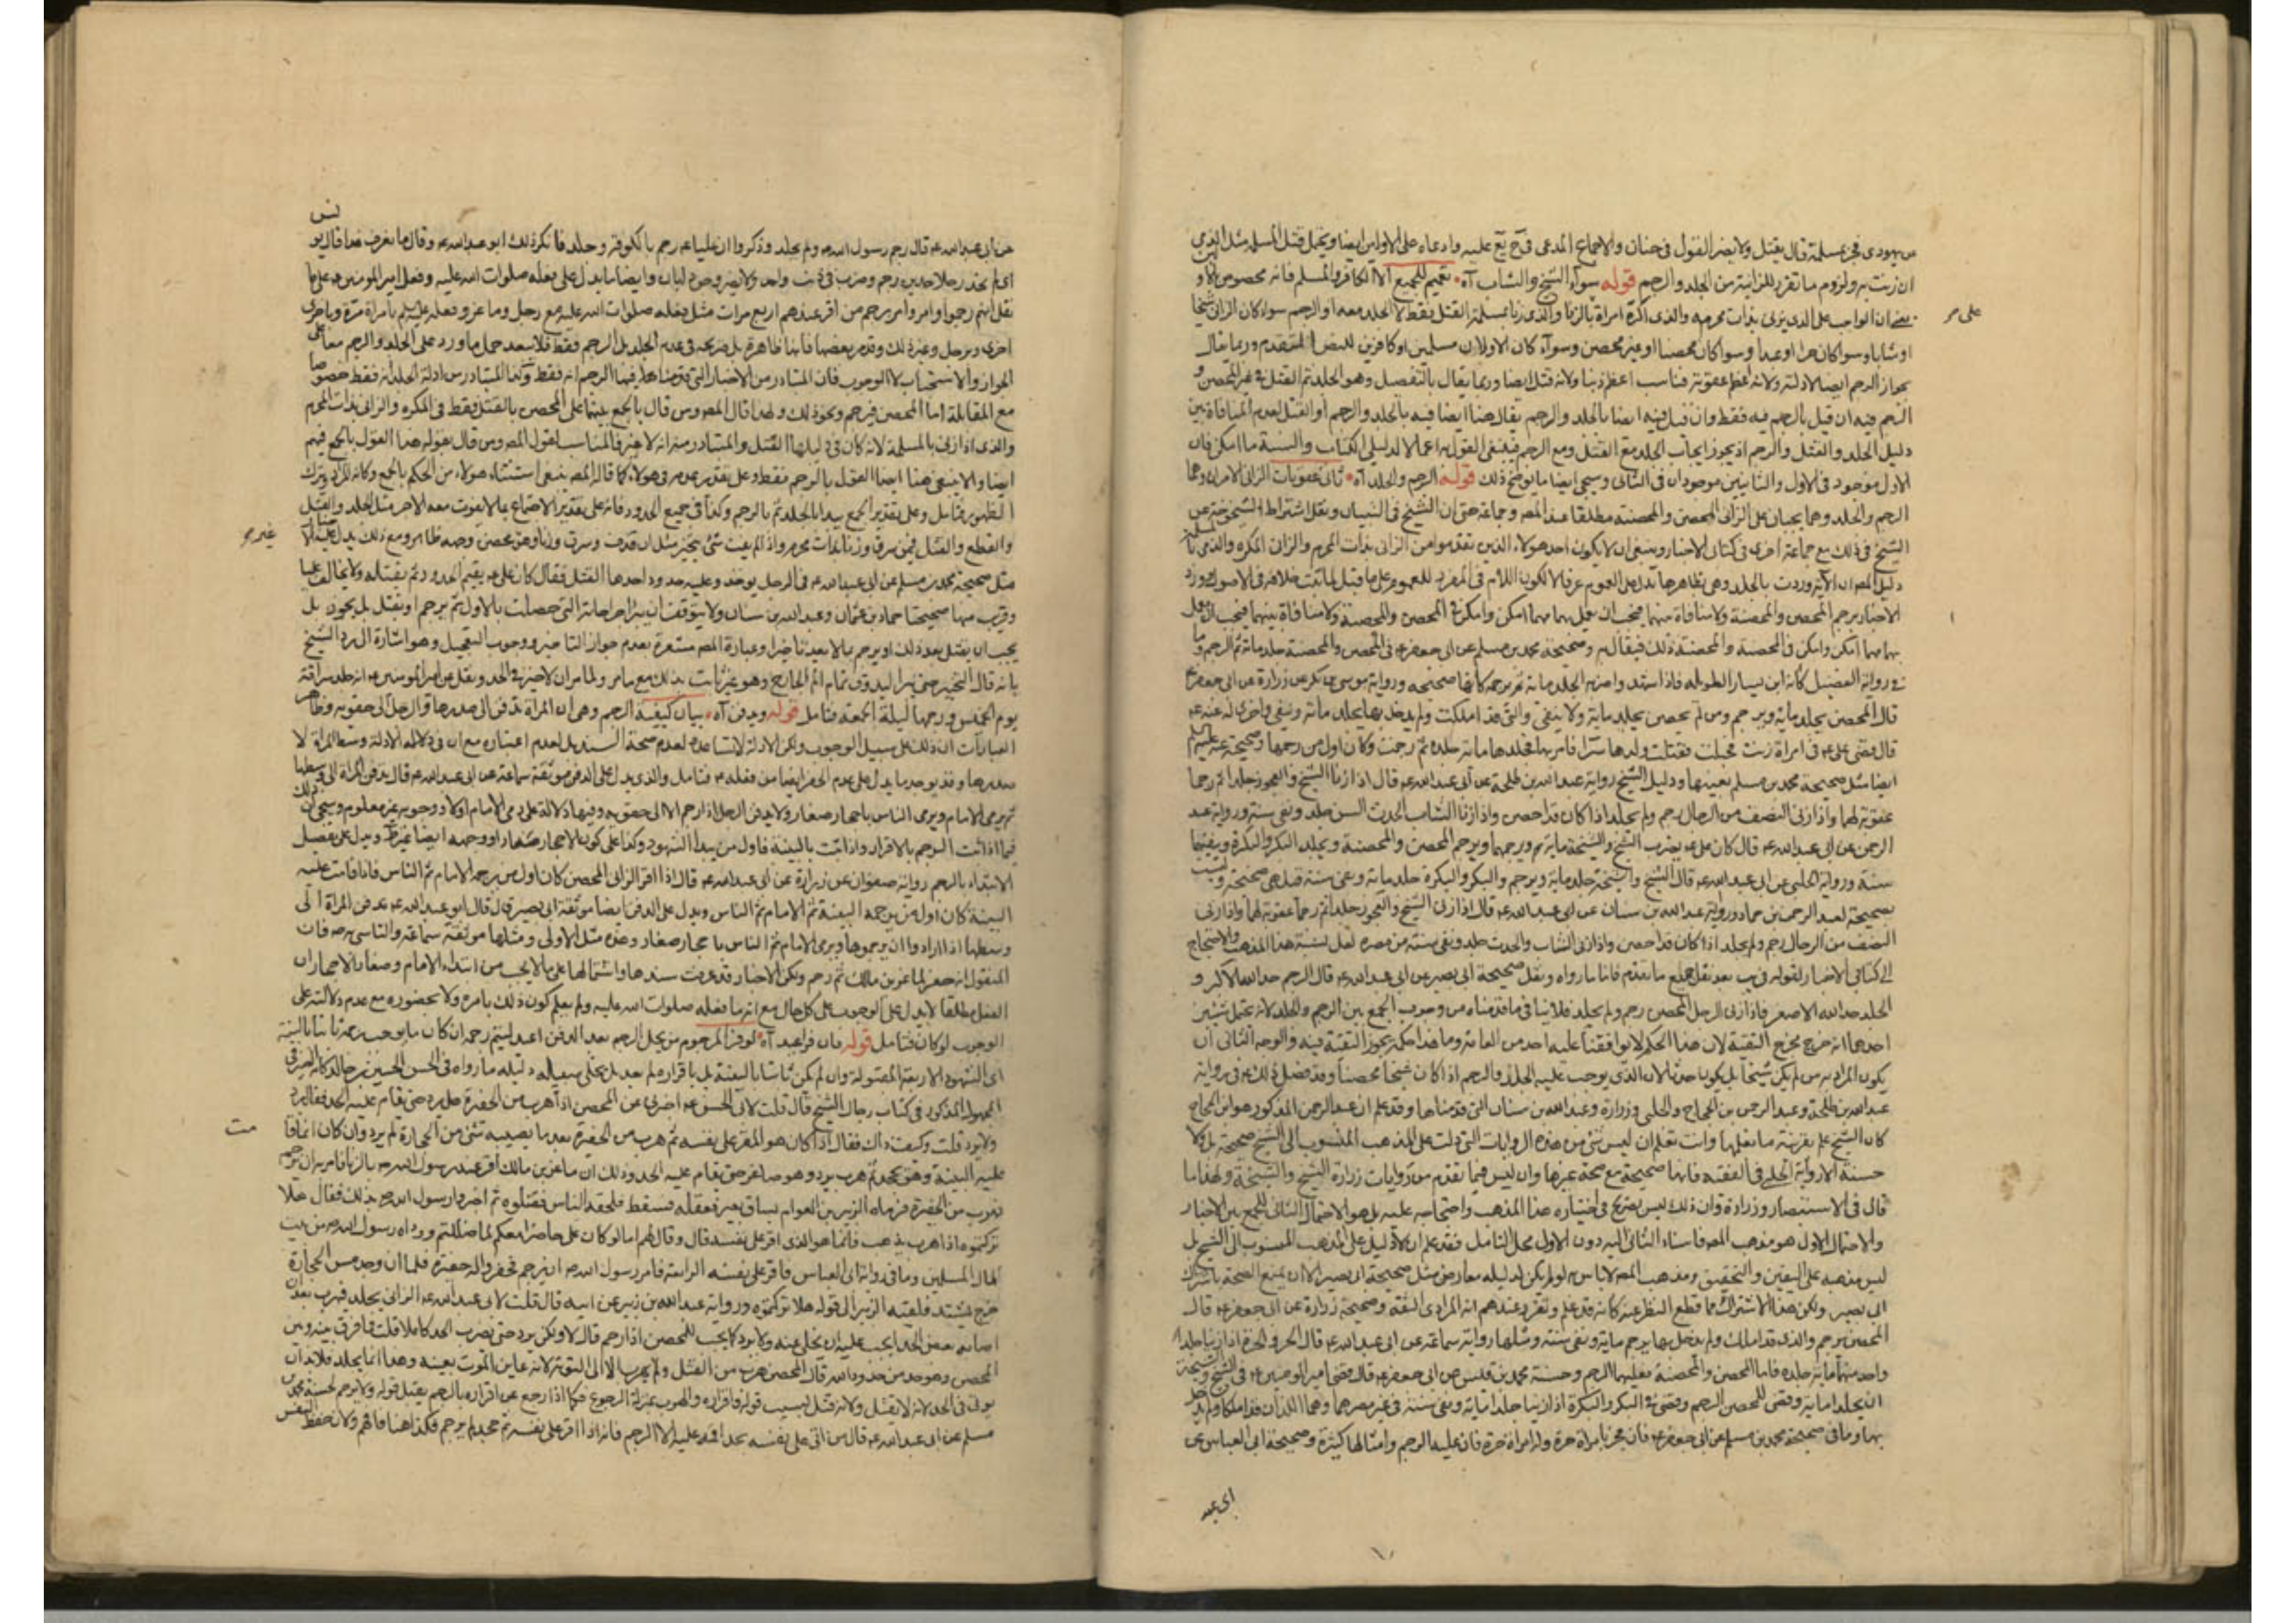 من يهودي فجر بمسلمة قال يقتل ولا يضر القول في حنان والاجماع المدعى في عليه وادعاه على الاولين ايضا ويحتمل قتل المسلمة مثل الذمي
ان زنت به ولزوم ما تقرر للزانية من الجلد والرجم قوله سواء الشيخ والشاب آه تعميم للجميع الا الكافر والمسلم فانه مخصوص
يعني ان الواجب على الذي يزني بذات محرمه والذي اكره امراة بالزنا والذي زنا بمسلمة القتل فقط لا الجلد معه او الرجم سواء كان الزاني شيخا
على م
او شابا وسواء كان حرا او عبدا وسواء كان محصنا او غير محصن وسواء كان الاولان مسلمين او كافرين للنص المتقدم وربما يقال
بجواز الرجم ايضا لادلته ولانه اعظم عقوبة فناسب اعظم ذنبا ولانه قتل ايضا وربما يقال بالتفصيل وهو الجلد ثم القتل في غير المحصن و
الرجم فيه ان قيل بالرجم فيه فقط وان قيل فيه ايضا بالجلد والرجم يقال هنا ايضا فيه بالجلد والرجم او القتل لعدم المنافاة بين
دليل الجلد والقتل والرجم اذ يجوز ايجاب الجلد مع القتل ومع الرجم فينبغي القول به اعمالا لدليلي الكتاب والسنة ما امكن فان
الاول موجود في الاول والثانيين موجودان في الثاني وسيجي ايضا ما يوضح ذلك قوله الرجم والجلد آه ثاني عقوبات الزاني الامران وهما
الرجم والجلد وهما يجبان على الزاني المحصن والمحصنة مطلقا عند المصه وجماعة حتى ان الشيخ في التبيان ونقل اشتراط الشيخوخة عن
الشيخ في ذلك مع جماعة اخرى في كتابي الاخبار وينبغي ان لا يكون احد هولاء الذين تقدموا من الزاني بذات المحرم والزان المكره والذمي
دليل المصه ان الآية وردت بالجلد وهي بظاهرها تدل على العموم عرفا لا لكون اللام في المفرد للعموم على ما قيل لما ثبت خلافه في الاصول وورد
الاخبار برجم المحصن والمحصنة ولا منافاة بينهما فيجب ان يعمل بهما مهما امكن وامكن في المحصن والمحصنة ولا منافاة بينهما فيجب العمل
بهما مهما امكن وامكن في المحصنة والمحصنة ذلك فيقال به وصحيحة محمد بن مسلم عن ابي جعفر ع في المحصن والمحصنة جلد مائة ثم الرجم و
في رواية الفضيل كأنه ابن يسار الطويلة فاذا شهد واضربه الجلد مائة ثم يرجمه كأنها صحيحه ورواية موسى بن بكر عن زرارة عن ابي جعفر ع
قال المحصن يجلد مائة ويرجم ومن لم يحصن يجلد مائة ولا ينفى والتي قد املكت ولم يدخل بها يجلد مائة وينفى واخرى له عنه ع
قال قضى علي ع في امراة زنت فحبلت فقتلت ولدها سرا فامر بها فجلدها مائة جلدة ثم رجمت وكان اول من رجمها وصحيحة عنه عليه السلام
ايضا مثل صحيحة محمد بن مسلم بعينها ودليل الشيخ رواية عبد الله بن طلحة عن ابي عبد الله ع قال اذا زنا الشيخ والعجوز جلدا ثم رجما
عقوبة لهما واذا زنى النصف من الرجال رجم ولم يجلد اذا كان قد احصن واذا زنا الشاب الحدث السن جلد ونفي سنة ورواية عبد
الرحمن عن ابي عبد الله ع قال كان علي ع يضرب الشيخ والشيخة مائة ويرجمهما ويرجم المحصن والمحصنة ويجلد البكر والبكرة وينفيهما
سنة ورواية الحلبي عن ابي عبد الله ع قال الشيخ والشيخة جلد مائة ويرجم والبكر والبكرة جلد مائة ونفي سنة قيل هي صحيحة وليست
بصحيحة لعبد الرحمن بن حماد ورواية عبد الله بن سنان عن ابي عبد الله ع قال اذا زنى الشيخ والعجوز جلدا ثم رجما عقوبة لهما واذا زنى
النصف من الرجال رجم ولم يجلد اذا كان قد احصن واذا زنى الشاب والحدث جلد ونفي سنة من مصره لعل نسبة هذا المذهب والاحتجاج
الى كتابي الاخبار لقوله في يب بعد نقل جميع ما تقدم فاما ما رواه ونقل صحيحة ابي بصير عن ابي عبد الله ع قال الرجم حد الله الاكبر و
الجلد حد الله الاصغر فاذا زنى الرجل المحصن رجم ولم يجلد فلا ينافي ما قدمناه من وجوب الجمع بين الرجم والجلد لانه يحتمل شيئين
احدهما انه خرج مخرج التقية لان هذا الحكم لا يوافقنا عليه احد من العامة وما هذا حكمه يجوز التقية فيه والوجه الثاني ان
يكون المراد به من لم يكن شيخا بل يكون حدثا لان الذي يوجب عليه الجلد والرجم اذا كان شيخا محصنا وقد فصل ذلك ع في رواية
عبد الله بن طلحة وعبد الرحمن بن الحجاج والحلبي وزرارة وعبد الله بن سنان التي قدمناها وقد علم ان عبد الرحمن المذكور هو ابن الحجاج
كان الشيخ علم بقرينة ما نقلها وانت تعلم ان ليس شي من هذه الروايات التي دلت على المذهب المنسوب الى الشيخ صحيحة بل ولا
حسنة الا رواية الحلبي في الفقيه فانها صحيحة مع صحة غيرها وان ليس فيما تقدم من روايات زرارة الشيخ والشيخة ولهذا ما
قال في الاستبصار وزرارة وان ذلك ليس بصريح في اختياره هذا المذهب واحتجاجه عليه بل هو الاحتمال الثاني للجمع بين الاخبار
والاحتمال الاول هو مذهب المصه فاسناد الثاني اليه دون الاول محل التامل فقد علم ان لا دليل على المذهب المنسوب الى الشيخ بل
ليس مذهبه على اليقين والتحقيق ومذهب المصه لا باس به لو لم يكن لدليله معارض مثل صحيحة ابي بصير الا ان يمنع الصحة باشتراك
ابي بصير ولكن هذا الاشتراك مما قطع النظر عنه كأنه قد علم وتقرر عندهم انه المرادي الثقة وصحيحة زرارة عن ابي جعفر ع قال
المحصن يرجم والذي قد املك ولم يدخل بها يرجم مائة ونفي سنة ومثلها رواية سماعة عن ابي عبد الله ع قال الحر والحرة اذا زنيا جلد
واحد منهما مائة جلدة فاما المحصن والمحصنة فعليهما الرجم وحسنة محمد بن قيس عن ابي جعفر ع قال قضى امير المومنين ع في الشيخ والشيخة
ان يجلدا مائة وقضى للمحصن الرجم وقضى في البكر والبكرة اذا زنيا جلد مائة ونفي سنة في غير مصرهما وهما اللذان قد املكا ولم يدخل
بها وما في صحيحة محمد بن مسلم عن ابي جعفر ع فان فجر بامراة حرة وله امراة حرة فان عليه الرجم وامثالها كثيرة وصحيحة ابي العباس عن
ابي عبد
عن ابي عبد الله ع قال رجم رسول الله ص ولم يجلد وذكروا ان عليا ع رجم بالكوفة وجلد فانكر ذلك ابو عبد الله ع وقال ما نعرف هذا قال يونس
اي لم نحد رجلا حدين رجم وضرب في ذنب واحد ولا يضر وجود ابان وايضا ما يدل على فعله صلوات الله عليه وفعل امير المومنين ع على ما
نقل انهم رجموا وامروا برجم من اقر عندهم اربع مرات مثل فعله صلوات الله عليه مع رجل وماعز وفعله عليه السلم بامراة مرة وباخرى
اخرى وبرجل وغير ذلك وقد مر بعضها فانها ظاهرة بل صريحة في عدم الجلد بل الرجم فقط فلا يبعد حمل ما ورد على الجلد والرجم معا على
الجواز والاستحباب لا الوجوب فان المتبادر من الاخبار التي قدمناها فيها الرجم انه فقط وكذا المتبادر من ادلة الجلد انه فقط خصوصا
مع المقابلة اما المحصن فيرجم ونحو ذلك ولهذا قال المصه ومن قال بالجمع بينهما على المحصن بالقتل فقط في المكره والزاني بذات المحرم
والذمي اذا زنى بالمسلمة لانه كان في دليلها القتل والمتبادر منه انه لا غير فالمناسب لقول المصه ومن قال بقوله هذا القول بالجمع فيهم
ايضا والا ينبغي هنا ايضا القول بالرجم فقط وعلى تقدير عدمه في هولاء كما قاله المصه ينبغي استثناء هولاء من الحكم بالجمع وكانه المراد وترك
الظهور فتامل وعلى تقدير الجمع يبدا بالجلد ثم بالرجم وكذا في جميع الحدود فانه على تقدير الاجتماع بما لا يفوت معه الاخر مثل الجلد والقتل
والقطع والقتل فمن سرق وزنا بذات محرم واذا لم يفت شي يخير مثل ان قذف وسرق وزنا وهو محصن وجهه ظاهر ومع ذلك يدل عليه
غير م
مثل صحيحة محمد بن مسلم عن ابي عبد الله ع في الرجل يوخذ وعليه حدود احدها القتل فقال كان علي ع يقيم الحدود ثم يقتله ولا يخالف عليا
وقريب منها صحيحتا حماد بن عثمان وعبد الله بن سنان ولا يتوقف ان يبرا جراحاته التي حصلت بالاول ثم يرجم او يقتل بل يجوز بل
يجب ان يقتل بعد ذلك او يرجم بلا بعيد تاخيرا وعبارة المصه مشعرة بعدم جواز التاخير ووجوب التعجيل وهو اشارة الى رد الشيخ
بانه قال التخيير حتى يبرا ليذوق تمام الم الجارح وهو غير ثابت بذلك مع ما مر ولما مر ان لا خير في الحد ونقل عن امير المومنين ع انه جلد سراقة
يوم الخميس ورجمها ليلة الجمعة فتامل قوله ويدفن آه بيان كيفية الرجم وهي ان المراة تدفن الى صدرها والرجل الى حقويه وظاهر
العبارات ان ذلك على سبيل الوجوب ولكن الادلة لا تساعده لعدم صحة السند بل لعدم اعتباره مع ان في دلالة الادلة وسط المراة لا
صدرها وقد يوجد ما يدل على عدم الحفر ايضا من فعله ع فتامل والذي يدل على الدفن موثقة سماعة عن ابي عبد الله ع قال تدفن المراة الى وسطها
ثم يرمي الامام ويرمي الناس باحجار صغار ولا يدفن الرجل اذا رجم الا الى حقويه وفيها دلالة على رمي الامام اولا ووجوبه غير معلوم وسيجي ان ذلك
فيما اذا ثبت الرجم بالاقرار واذا ثبت بالبينة فاول من يبدا الشهود وكذا على كون الاحجار صغارا ووجهه ايضا ظاهر ويدل على تفصيل
الابتداء بالرجم رواية صفوان عن زرارة عن ابي عبد الله ع قال اذا اقر الزاني المحصن كان اول من يرجمه الامام ثم الناس فاذا قامت عليه
البينة كان اول من يرجمه البينة ثم الامام ثم الناس ويدل على الدفن ايضا موثقة ابي بصير قال قال ابو عبد الله ع تدفن المراة الى
وسطها اذا ارادوا ان يرجموها ويرمي الامام ثم الناس باحجار صغار وهذه مثل الاولى ومثلها موثقة سماعة والتاسي به ص فان
المنقول انه حفر لماعز بن مالك ثم رجم ولكن الاخبار قد عرفت سندها واشتمالها على ما لا يجب من ابتداء الامام وصغار الاحجار ان
الفعل مطلقا لا يدل على الوجوب على كل حال مع انه ما فعله صلوات الله عليه ولم يعلم كون ذلك بامره ولا بحضوره مع عدم دلالته على
الوجوب لو كان فتامل قوله فان فر اعيد آه لو فر المرجوم من محل الرجم بعد الدفن اعيد ليتم رجمه ان كان ما يوجب رجمه ثابتا بالبينة
اي الشهود الاربعة المقبولة وان لم يكن ثابتا بالبينة بل باقراره لم يعد بل يخلى سبيله دليله ما رواه في الحسن الحسين بن خالد كأنه الصيرفي
المجهول المذكور في كتاب رجال الشيخ قال قلت لابي الحسن ع اخبرني عن المحصن اذا هرب من الحفرة هل يرد حتى يقام عليه الحد فقال يرد
ولا يرد قلت وكيف ذاك فقال اذا كان هو المقر على نفسه ثم هرب من الحفيرة بعد ما يصيبه شي من الحجارة لم يرد وان كان انما قامت
مت
عليه البينة وهو يجحد ثم هرب يرد وهو صاغر حتى يقام عليه الحد وذلك ان ماعز بن مالك اقر عند رسول الله ص بالزنا فامر به ان يرجم
فهرب من الحفيرة فرماه الزبير بن العوام بساق بعير فعقله فسقط فلحقه الناس فقتلوه ثم اخبروا رسول الله ص بذلك فقال هلا
تركتموه اذا هرب يذهب فانما هو الذي اقر على نفسه قال وقال لهم اما لو كان علي حاضرا معكم لما ضللتم ووداه رسول الله ص من بيت
المال المسلمين وما في رواية ابي العباس فاقر على نفسه الرابعة فامر رسول الله ص ان يرجم فحفروا له حفيرة فلما ان وجد مس الحجارة
خرج يشتد فلقيه الزبير الى قوله هلا تركتموه ورواية عبد الله بن زبير عن ابيه قال قلت لابي عبد الله ع الزاني يجلد فيهرب بعد ان
اصابه بعض الحد ايجب عليه ان يخلى عنه ولا يرد كما يجب للمحصن اذا رجم قال لا ولكن يرد حتى يضرب الحد كاملا قلت فما فرق بينه وبين
المحصن وهو حد من حدود الله قال المحصن هرب من القتل ولم يهرب الا الى التوبة لانه عاين الموت بعينه وهذا انما يجلد فلابد ان
يوفى الحد لانه لا يقتل ولانه قتل بسبب قوله واقراره والهرب بمنزلة الرجوع فكما اذا رجع عن اقراره بالرجم يقبل قوله ولا يرجم لحسنة محمد بن
مسلم عن ابي عبد الله ع قال من اقر على نفسه بحد اقمته عليه الا الرجم فانه اذا اقر على نفسه ثم جحد لم يرجم فكذا هنا فافهم ولان حفظ النفس